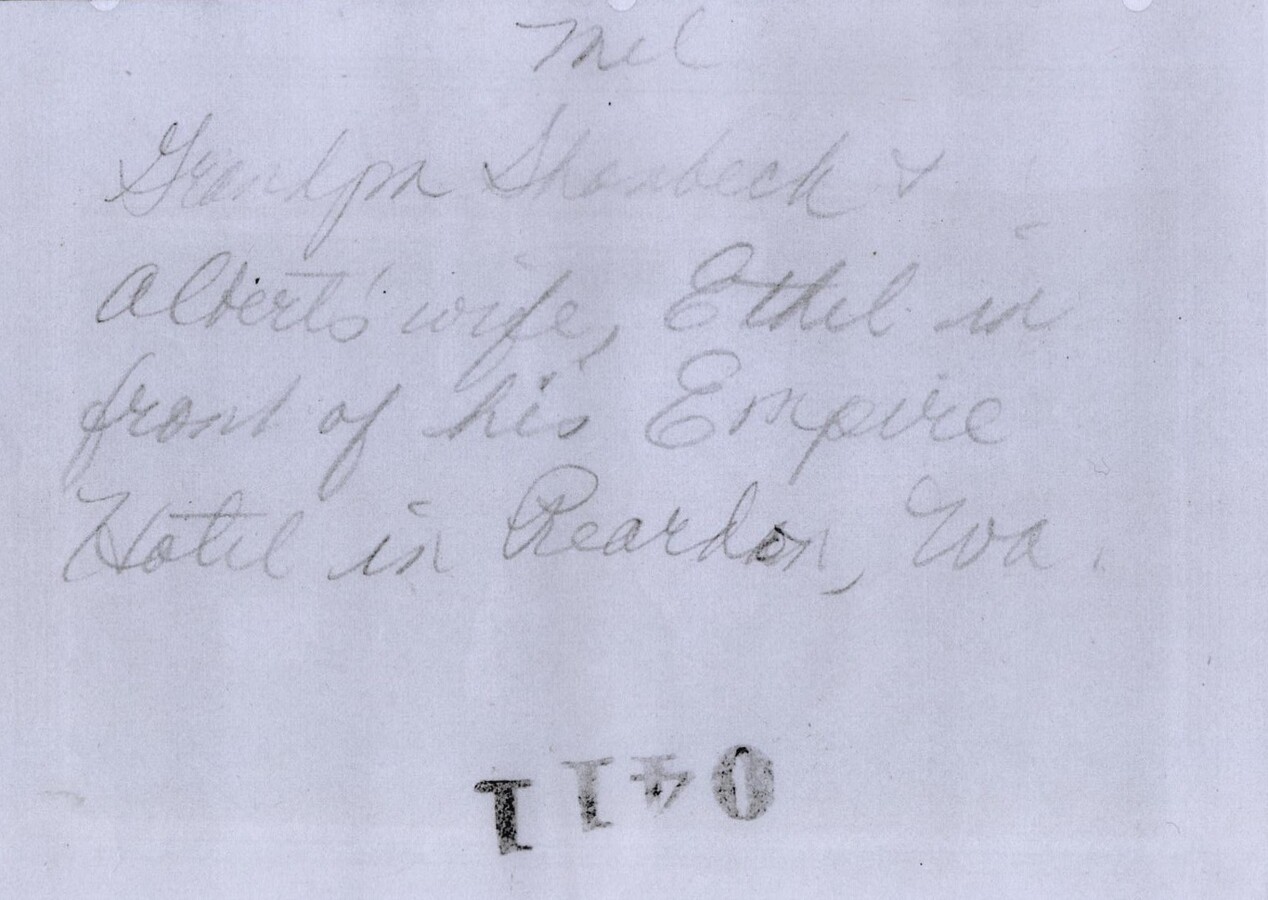 Mel
Grandpa Shanbeck &
Albert's wife, Ethel in
front of his Empire
Hotel in Reardon, Wa.
0411